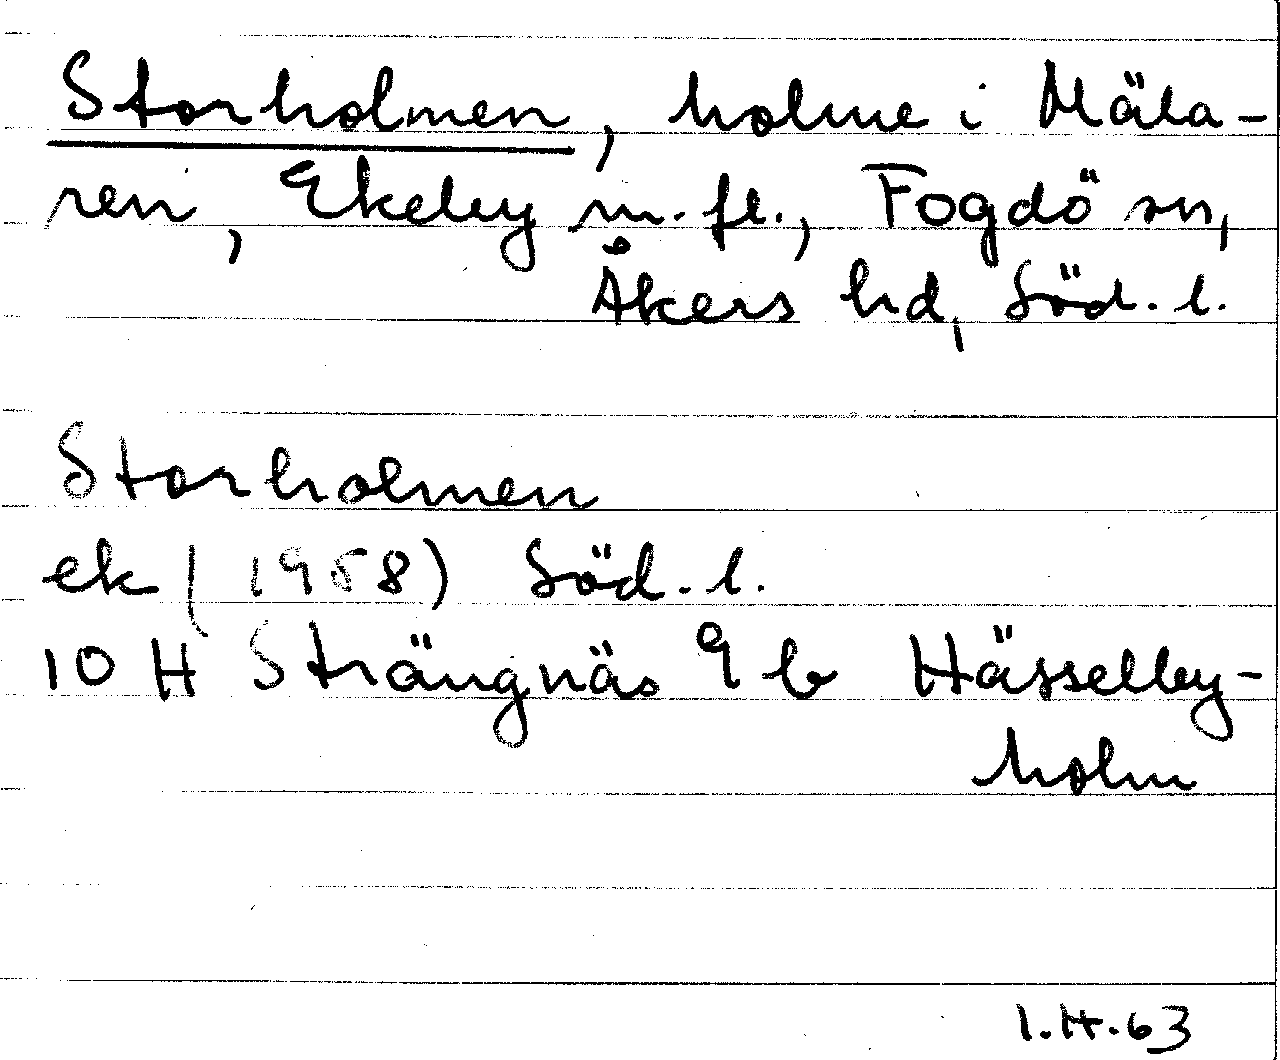 Storholmen, holme i Mäla-
ren, Ekeby m. fl., Fogdö sn,
Åkers hd, Söd. l.
Storholmen
ek (1958) Söd. l.
10 H Strängnäs 9 b Hässelby-
holm
I.H.63